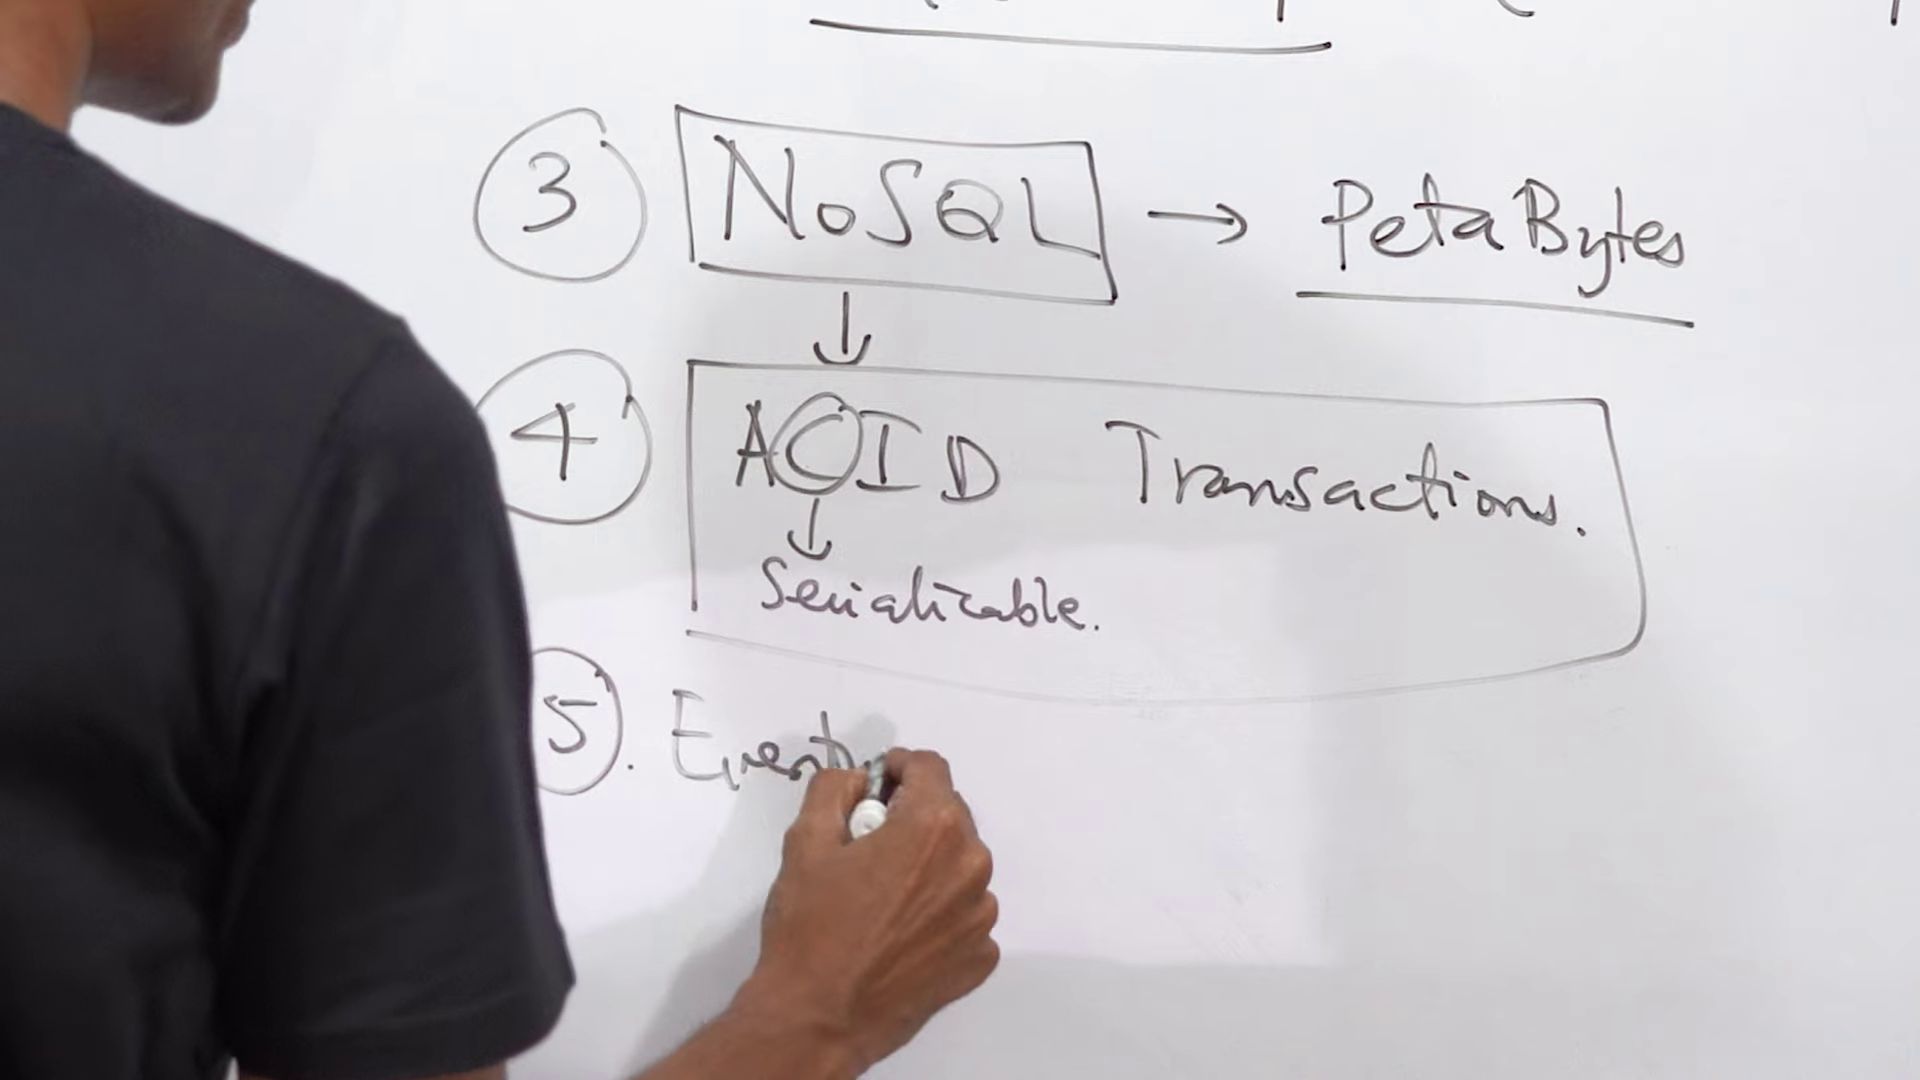 3 NoSQL → PetaBytes
↓
4 ACID Transactions.
↓
Serializable.
5. Event